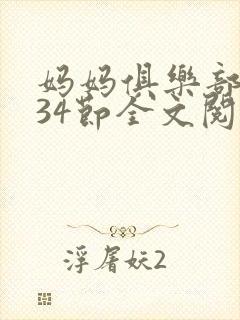 妈妈俱樂部
34節全文閱
浮屠妖2